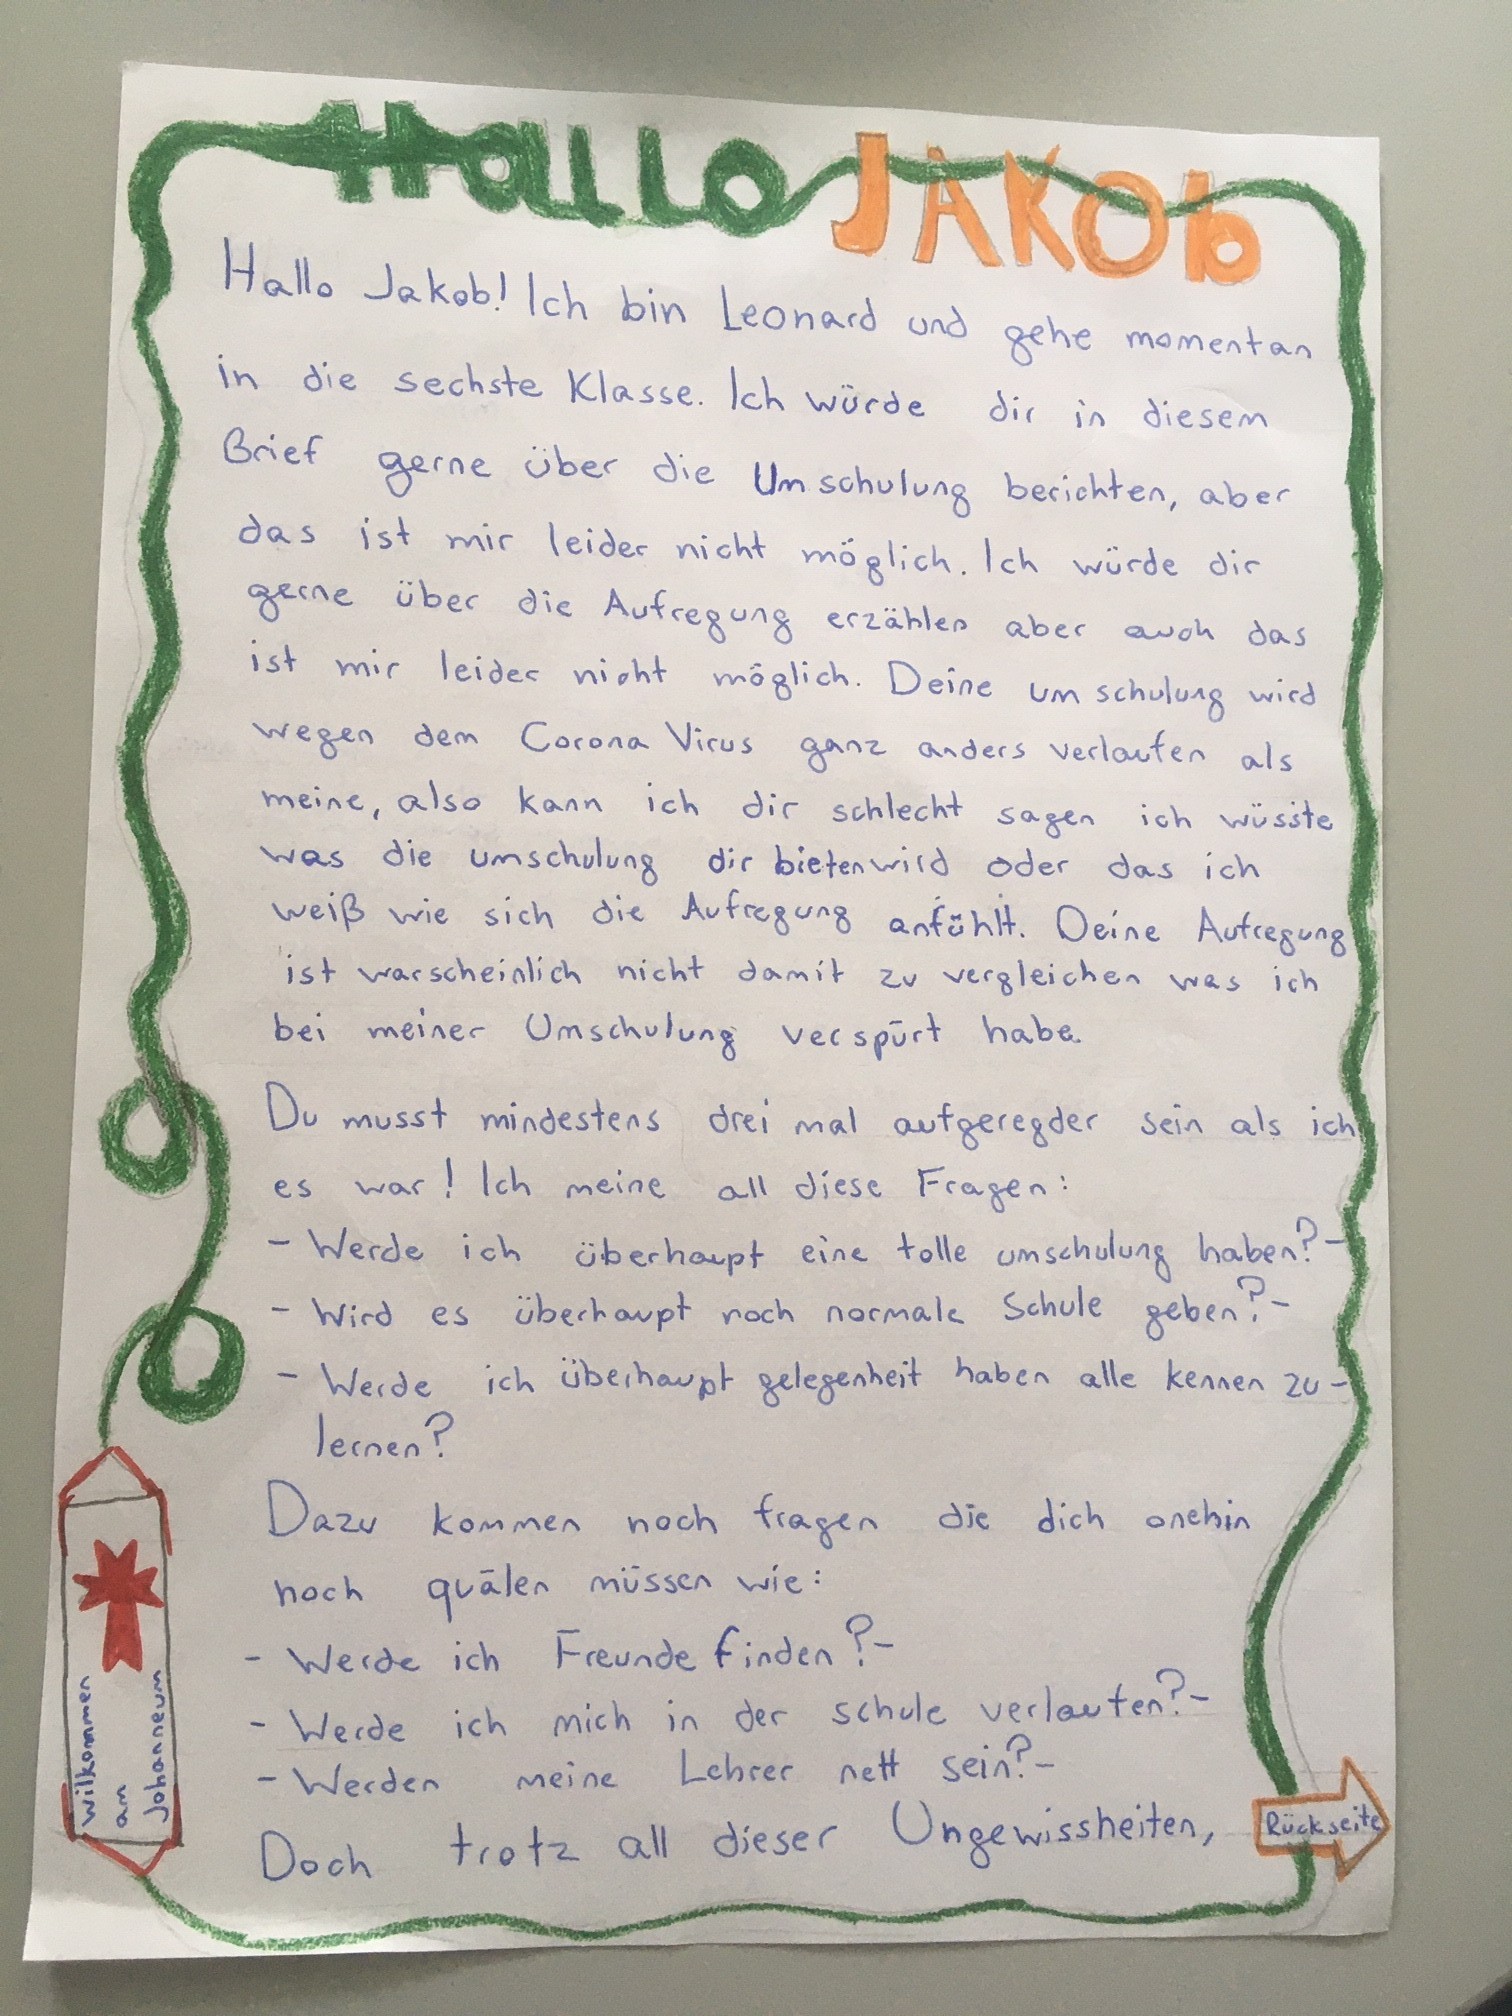 Hallo JAKOb
Hallo Jakob! Ich bin Leonard und gehe momentan
in die sechste Klasse. Ich würde dir in diesem
Brief gerne über die Umschulung berichten, aber
das ist mir leider nicht möglich. Ich würde dir
gerne über die Aufregung erzählen aber auch das
ist mir leider nicht möglich. Deine umschulung wird
wegen dem Corona Virus ganz anders verlaufen als
meine, also kann ich dir schlecht sagen ich wüsste
was die umschulung dir bieten wird oder das ich
weiß wie sich die Aufregung anfühlt. Deine Aufregung
ist warscheinlich nicht damit zu vergleichen was ich
bei meiner Umschulung verspürt habe.
Du musst mindestens drei mal aufgeregder sein als ich
es war! Ich meine all diese Fragen:
- Werde ich überhaupt eine tolle umschulung haben?-
- Wird es überhaupt noch normale Schule geben?-
- Werde ich überhaupt gelegenheit haben alle kennen zu-
lernen?
Dazu kommen noch fragen die dich onehin
noch quälen müssen wie:
- Werde ich Freunde finden?-
- Werde ich mich in der schule verlaufen?-
- Werden meine Lehrer nett sein?-
Doch trotz all dieser Ungewissheiten,
Rückseite
Wilkommen
am
Johanneum